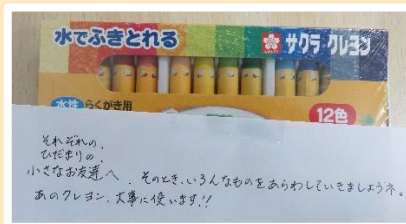 水でふきとれる
サクラクレヨン
水性 らくがき用
12色
それぞれの、
ひだまりの、
小さなお友達へ、そのとき、いろんなものをあらわしていきましょうネ。
あのクレヨン、大事に使います!!